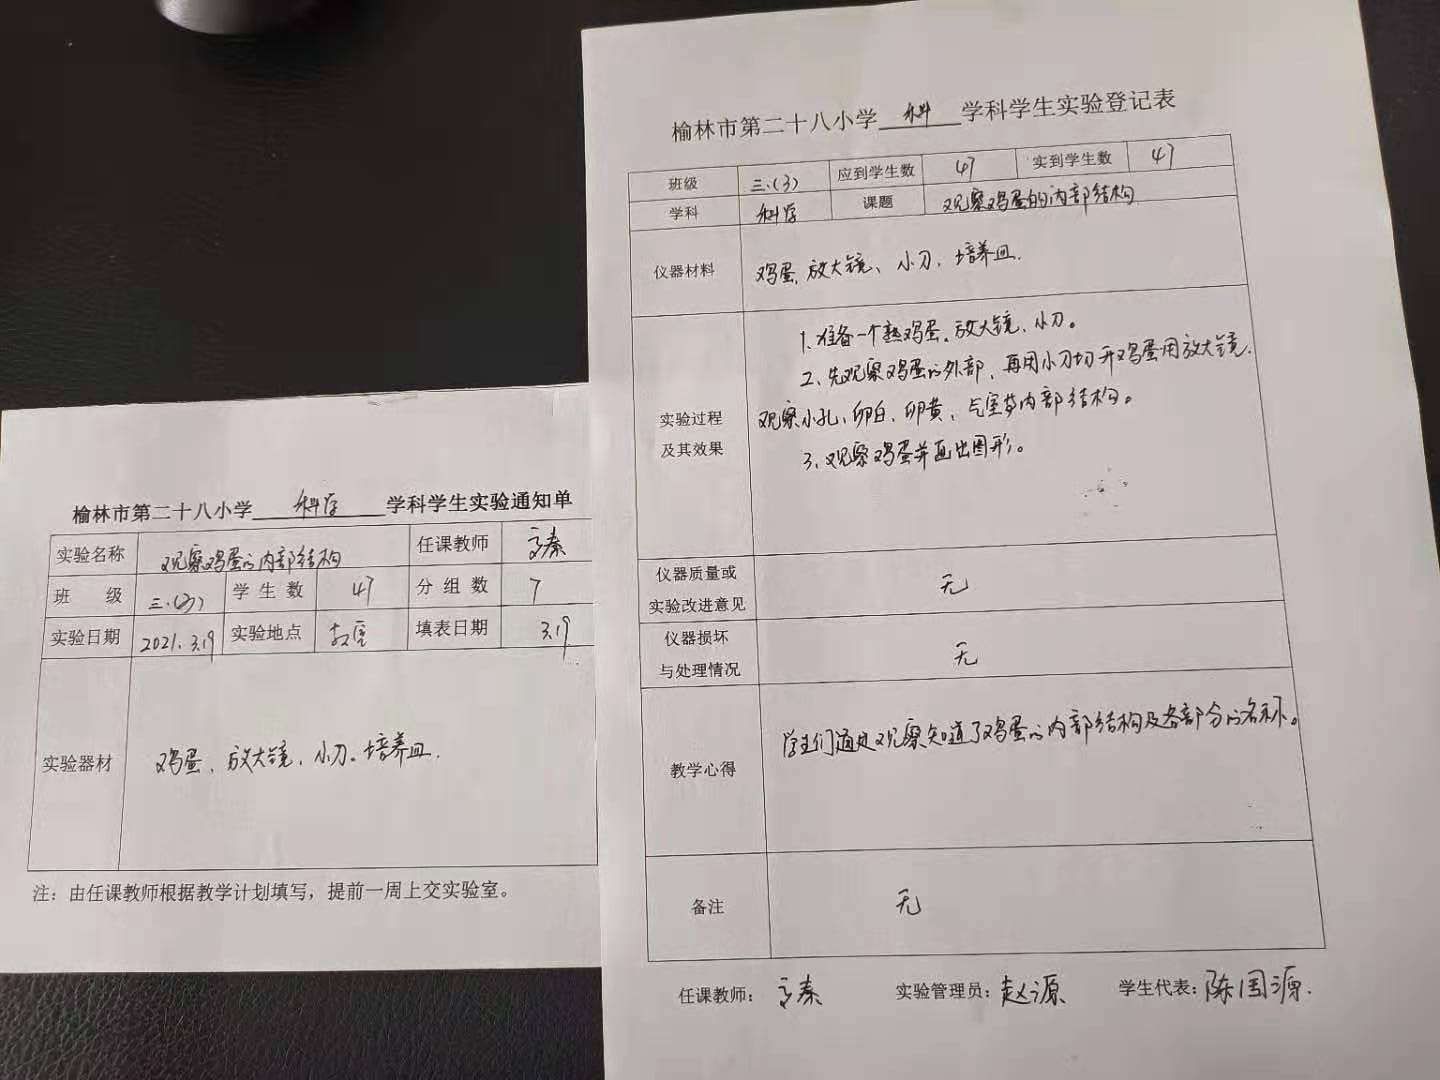 榆林市第二十八小学 科学 学科学生实验通知单
实验名称 观察鸡蛋的内部结构 任课教师
班 级 三.(3) 学生数 47 分组数 7
实验日期 2021.3.19 实验地点 教室 填表日期 3.19
实验器材 鸡蛋、放大镜、小刀、培养皿.
注：由任课教师根据教学计划填写，提前一周上交实验室。
榆林市第二十八小学 科 学科学生实验登记表
班级 三.(3) 应到学生数 47 实到学生数 47
学科 科学 课题 观察鸡蛋的内部结构
仪器材料 鸡蛋、放大镜、小刀、培养皿.
实验过程
及其效果
1、准备一个熟鸡蛋、放大镜、小刀。
2、先观察鸡蛋的外部，再用小刀切开鸡蛋用放大镜
观察小孔、卵白、卵黄、气室等内部结构。
3、观察鸡蛋并画出图形。
仪器质量或
实验改进意见 无
仪器损坏
与处理情况 无
教学心得 学生们通过观察知道了鸡蛋的内部结构及各部分的名称。
备注 无
任课教师： 实验管理员：赵源 学生代表：陈国源.